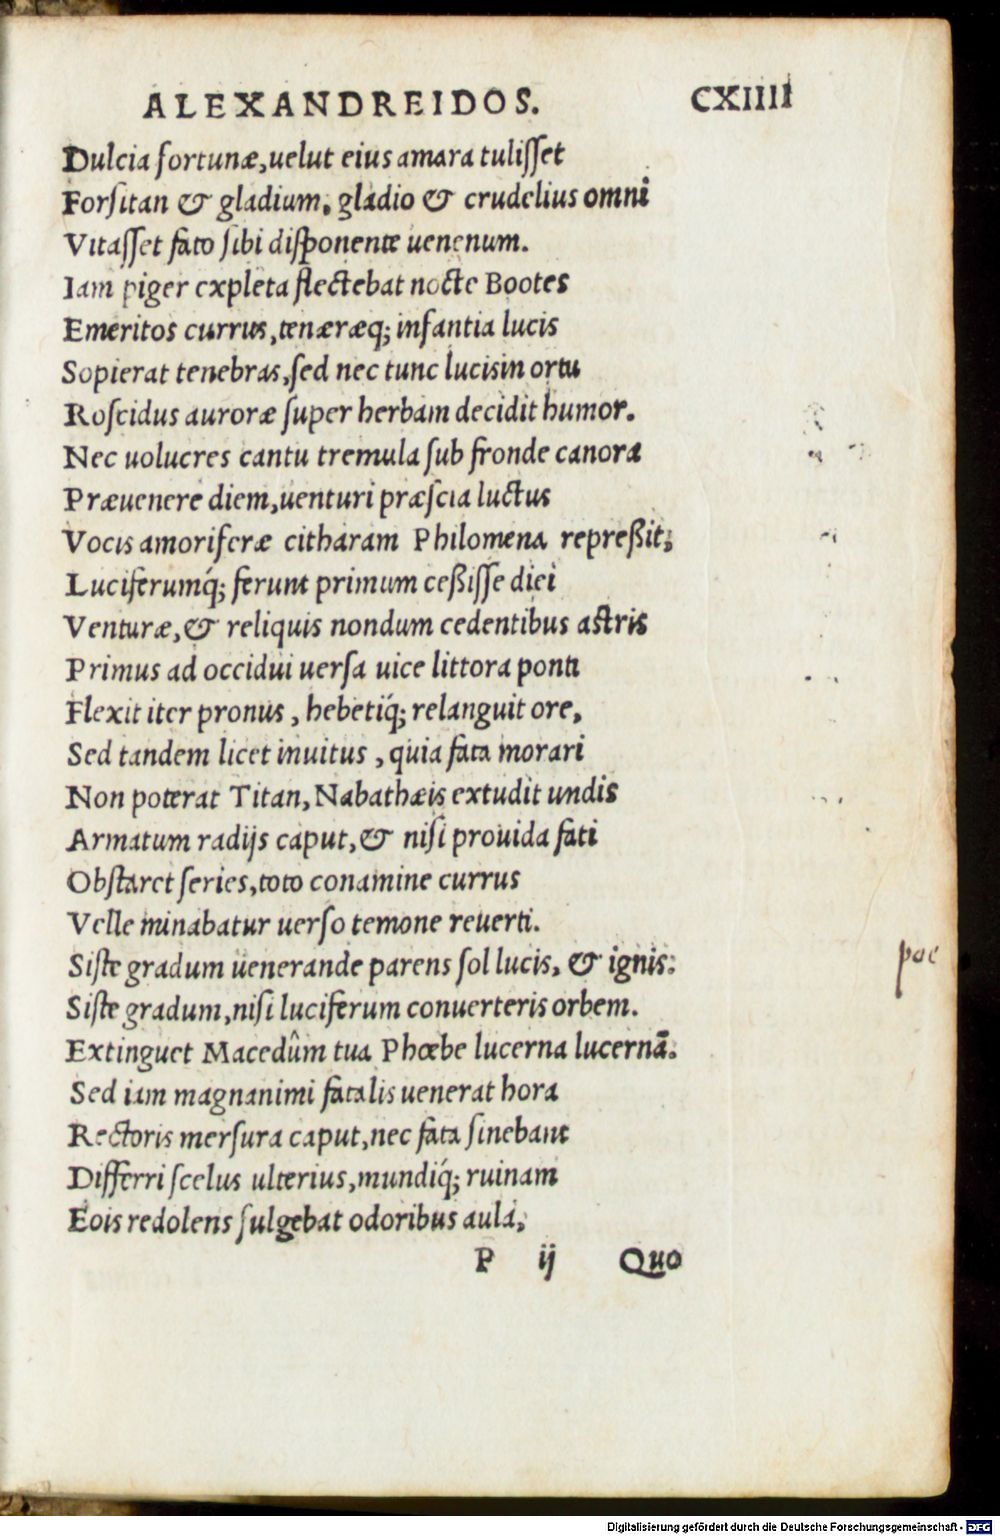 ALEXANDREIDOS. CXIIII
Dulcia fortunæ,uelut eius amara tuliſſet
Forſitan & gladium, gladio & crudelius omni
Vitaſſet fato ſibi diſponente uenenum.
Iam piger expleta flectebat nocte Bootes
Emeritos currus,tenæræq; infantia lucis
Sopierat tenebras,ſed nec tunc lucisin ortu
Roſcidus auroræ ſuper herbam decidit humor.
Nec uolucres cantu tremula ſub fronde canora
Præuenere diem,uenturi præſcia luctus
Vocis amoriferæ citharam Philomena repreßit;
Luciferumq́; ferunt primum ceßiſſe diei
Venturæ,& reliquis nondum cedentibus aſtris
Primus ad occidui uerſa uice littora ponti
Flexit iter pronus, hebetiq́; relanguit ore,
Sed tandem licet inuitus, quia fata morari
Non poterat Titan, Nabathæis extudit undis
Armatum radijs caput,& niſi prouida fati
Obſtaret ſeries,toto conamine currus
Velle minabatur uerſo temone reuerti.
Siſte gradum uenerande parens ſol lucis, & ignis:
Siſte gradum,niſi luciferum conuerteris orbem.
Extinguet Macedûm tua Phœbe lucerna lucernā.
Sed iam magnanimi fatalis uenerat hora
Rectoris merſura caput,nec fata ſinebant
Differri ſcelus ulterius,mundiq́; ruinam
Eois redolens fulgebat odoribus aula,
P ij Quo
poe
Digitalisierung gefördert durch die Deutsche Forschungsgemeinschaft - DFG